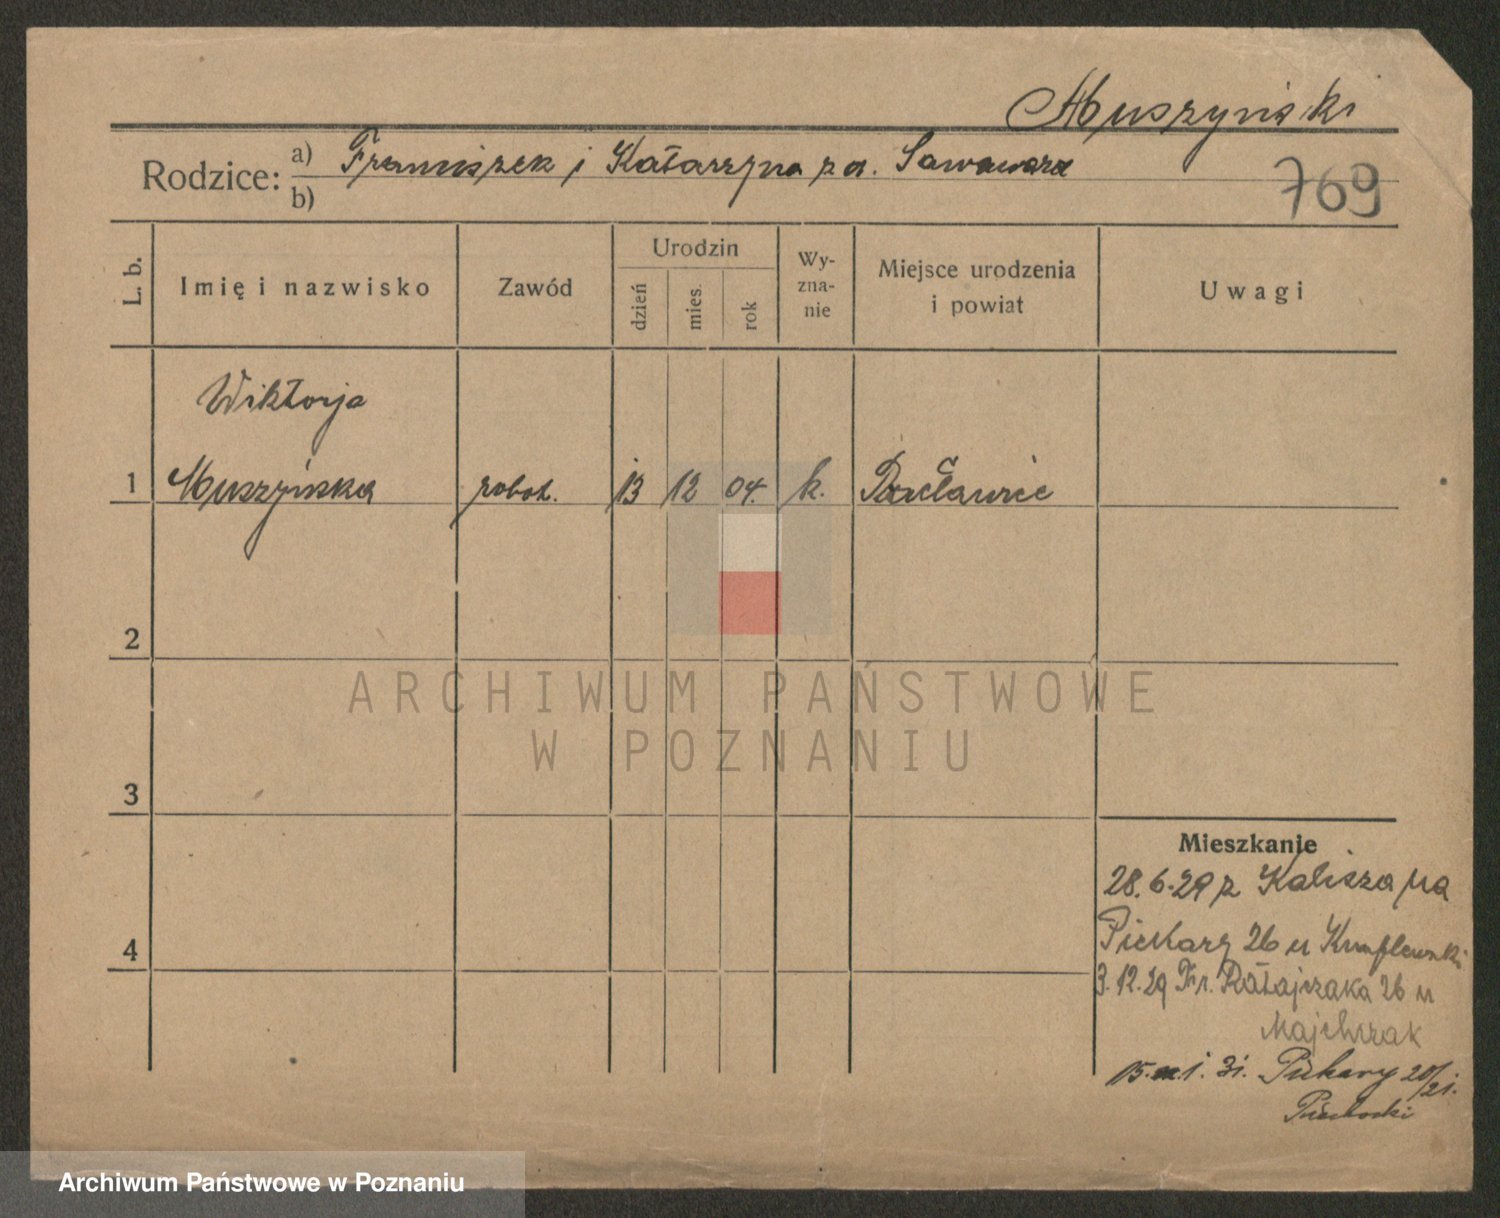 Muszyński
Rodzice: a) Franciszek i Katarzyna z d.
b)
769
L. b.
Imię i nazwisko
Zawód
Urodzin
dzień
mies.
rok
Wy-
zna-
nie
Miejsce urodzenia
i powiat
Uwagi
Wiktorja
1 Muszyńska robot. 13 12 04. k. Racławice
2
3
4
Mieszkanie
28.6.29 z Kalisza na
Piekary 26 u
3.12.29 Fr. Ratajczaka 26 u
Majchrzak
15. 1. 31. Piekary 20/21.
Piechocki
ARCHIWUM PAŃSTWOWE
W POZNANIU
Archiwum Państwowe w Poznaniu